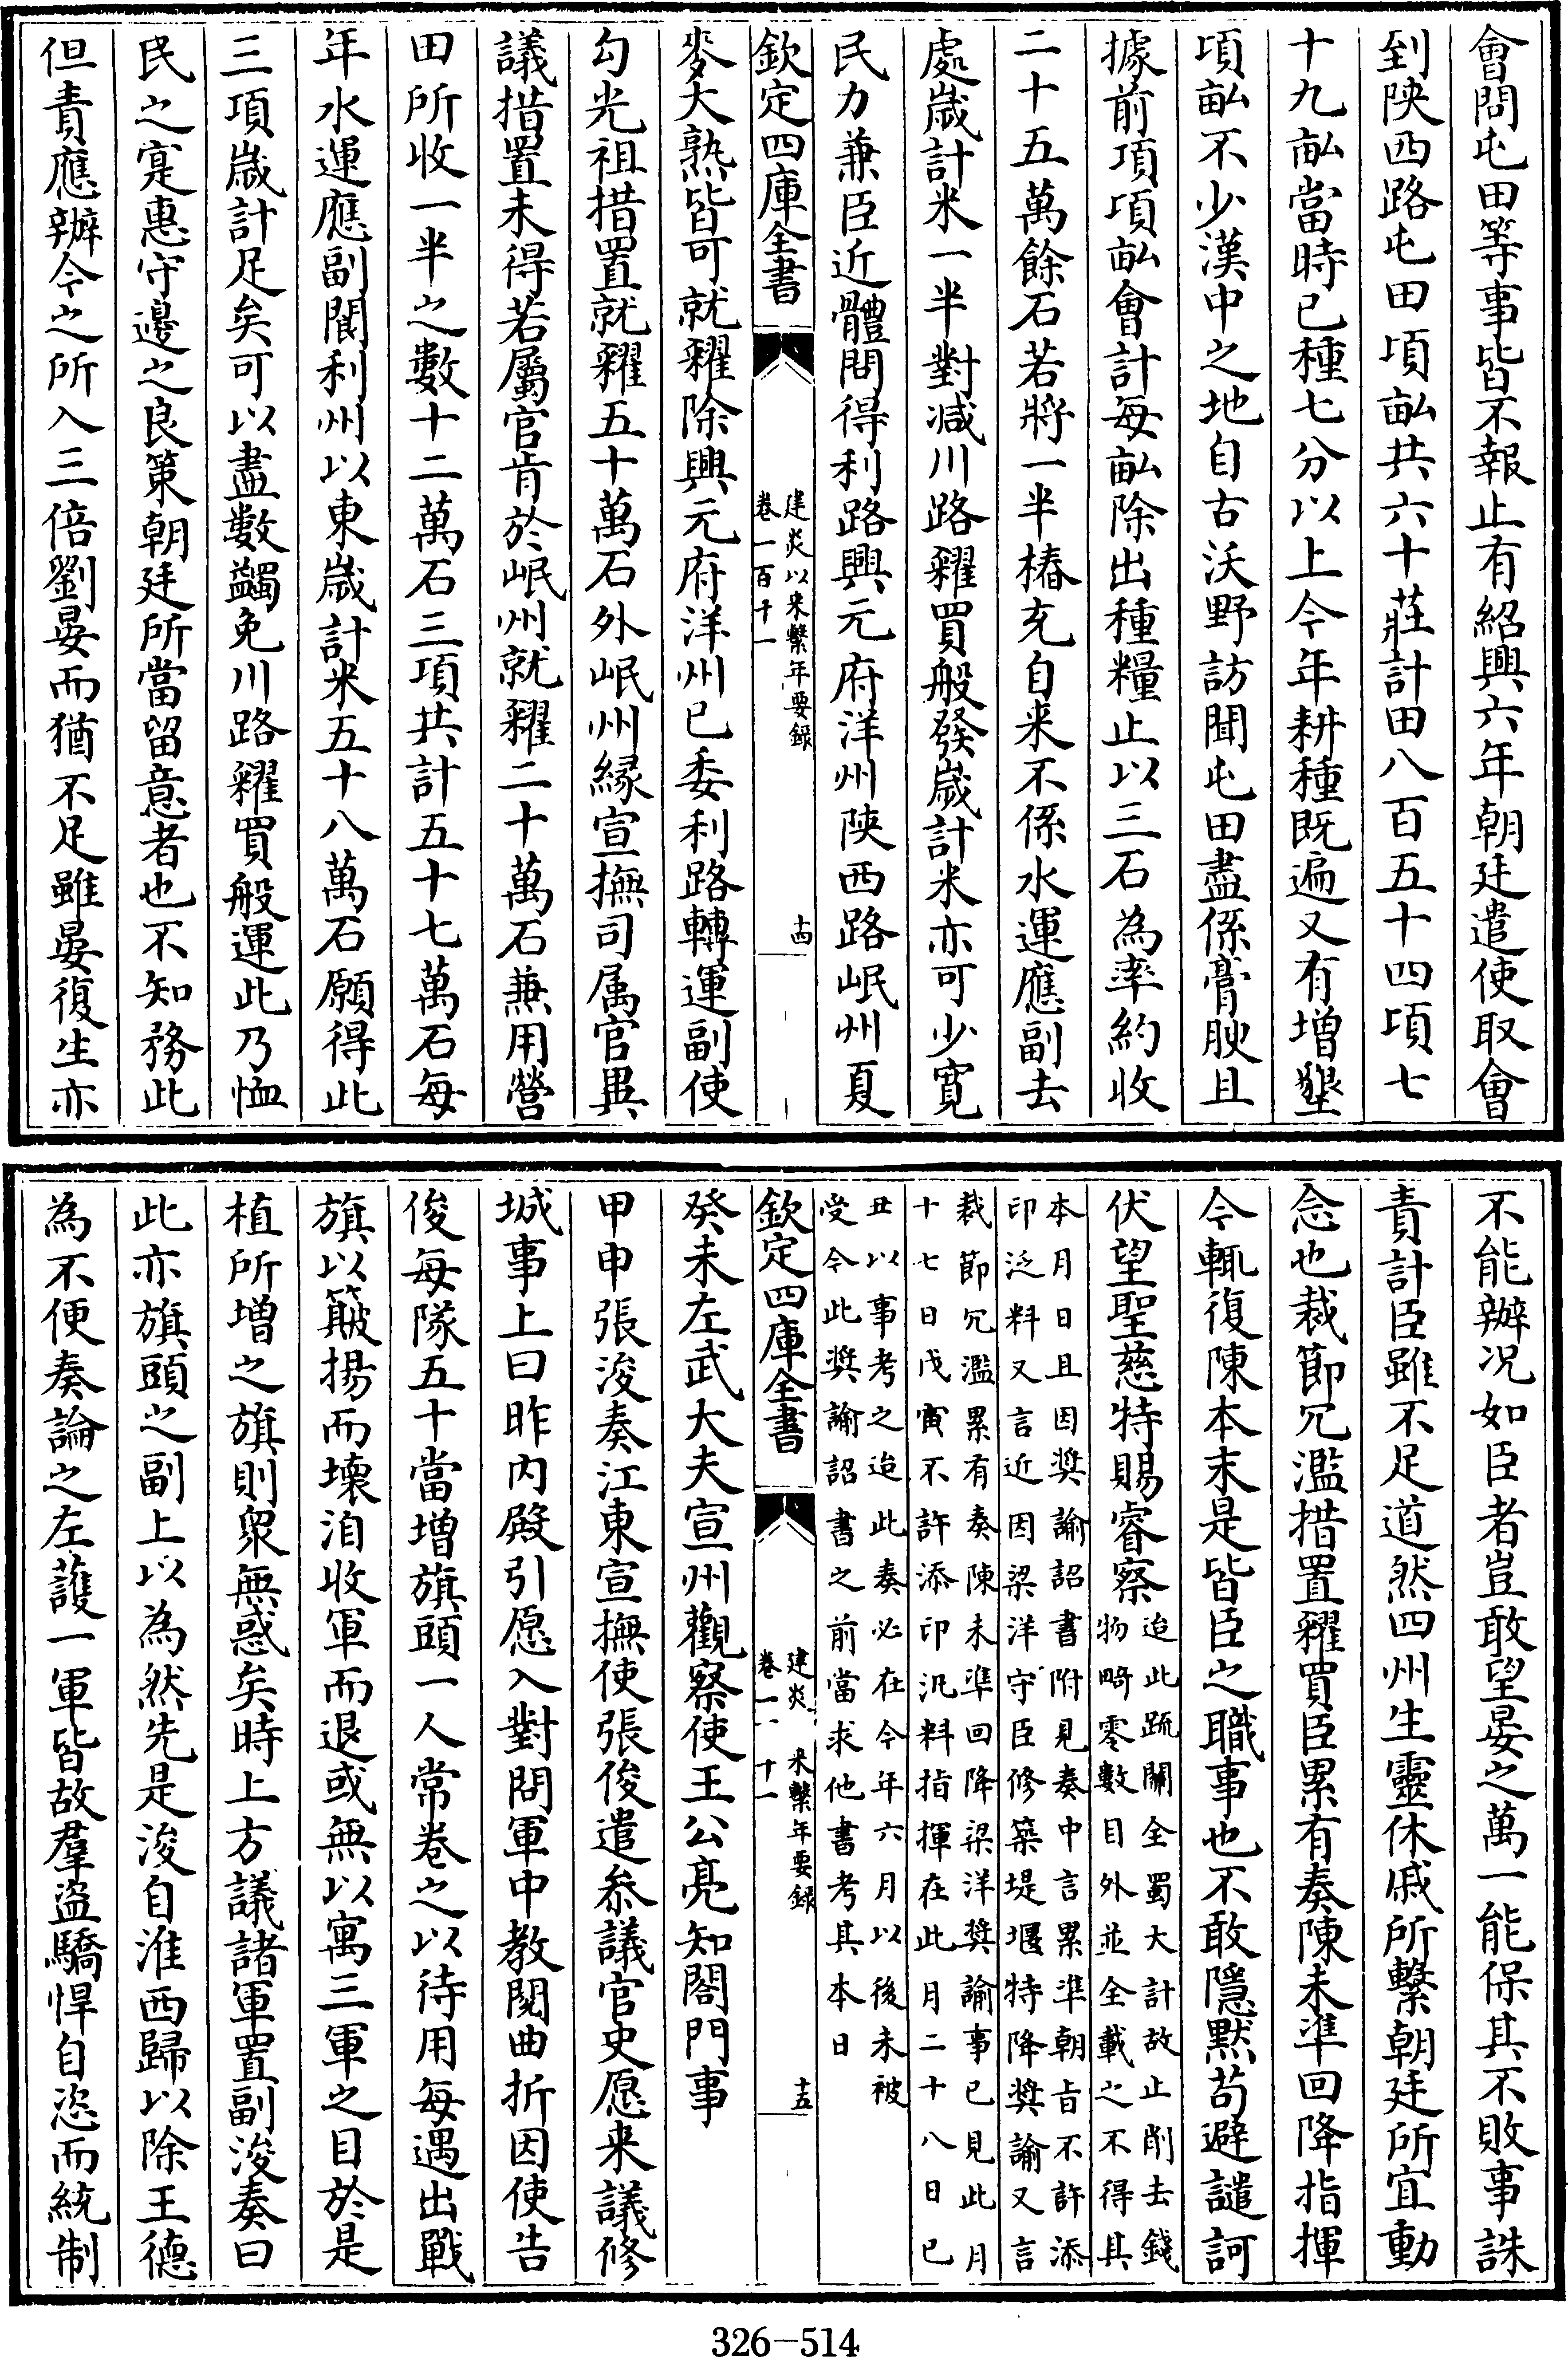 會問屯田等事皆不報止有紹興六年朝廷遣使取會
到陜西路屯田項畝共六十莊計田八百五十四項七
十九畝當時已種七分以上今年耕種既遍又有增墾
項畝不少漢中之地自古沃野訪聞屯田盡係膏腴且
據前項項畝會計每畝除出種糧止以三石為率約收
二十五萬餘石若將一半樁充自来不係水運應副去
處歲計米一半對减川路糴買般發歲計米亦可少寛
民力兼臣近體問得利路興元府洋州陜西路岷州夏
欽定四庫全書
建炎以来繫年要録
卷一百十一
十四
麥大熟皆可就糴除興元府洋州已委利路轉運副使
勾光祖措置就糴五十萬石外岷州縁宣撫司属官異
議措置未得若屬官肯於岷州就糴二十萬石兼用營
田所收一半之數十二萬石三項共計五十七萬石每
年水運應副閬利州以東歲計米五十八萬石願得此
三項歲計足矣可以盡數蠲免川路糴買般運此乃恤
民之寔惠守邊之良策朝廷所當留意者也不知務此
但責應辦今之所入三倍劉晏而猶不足雖晏復生亦
不能辦况如臣者豈敢望晏之萬一能保其不敗事誅
責計臣雖不足道然四州生靈休戚所繫朝廷所宜動
念也裁節冗濫措置糴買臣累有奏陳未準回降指揮
今輒復陳本末是皆臣之職事也不敢隱默苟避譴訶
伏望聖慈特賜睿察
迨此疏關全蜀大計故止削去錢
物畸零數目外並全載之不得其
本月日且因奨諭詔書附見奏中言累準朝旨不許添
印泛料又言近因梁洋守臣修築堤堰特降奨諭又言
裁節冗濫累有奏陳未準回降梁洋奨諭事已見此月
十七日戊寅不許添印汎料指揮在此月二十八日已
丑以事考之迨此奏必在今年六月以後未被
受今此奨諭詔書之前當求他書考其本日
欽定四庫全書
建炎 来繫年要録
卷一 十一
十五
癸未左武大夫宣州觀察使王公亮知閤門事
甲申張浚奏江東宣撫使張俊遣叅議官史愿来議修
城事上曰昨内殿引愿入對問軍中教閲曲折因使告
俊每隊五十當增旗頭一人常卷之以待用每遇出戰
旗以簸揚而壞洎收軍而退或無以寓三軍之目於是
植所增之旗則衆無惑矣時上方議諸軍置副浚奏曰
此亦旗頭之副上以為然先是浚自淮西歸以除王德
為不便奏論之左護一軍皆故羣盗驕悍自恣而統制
326-514